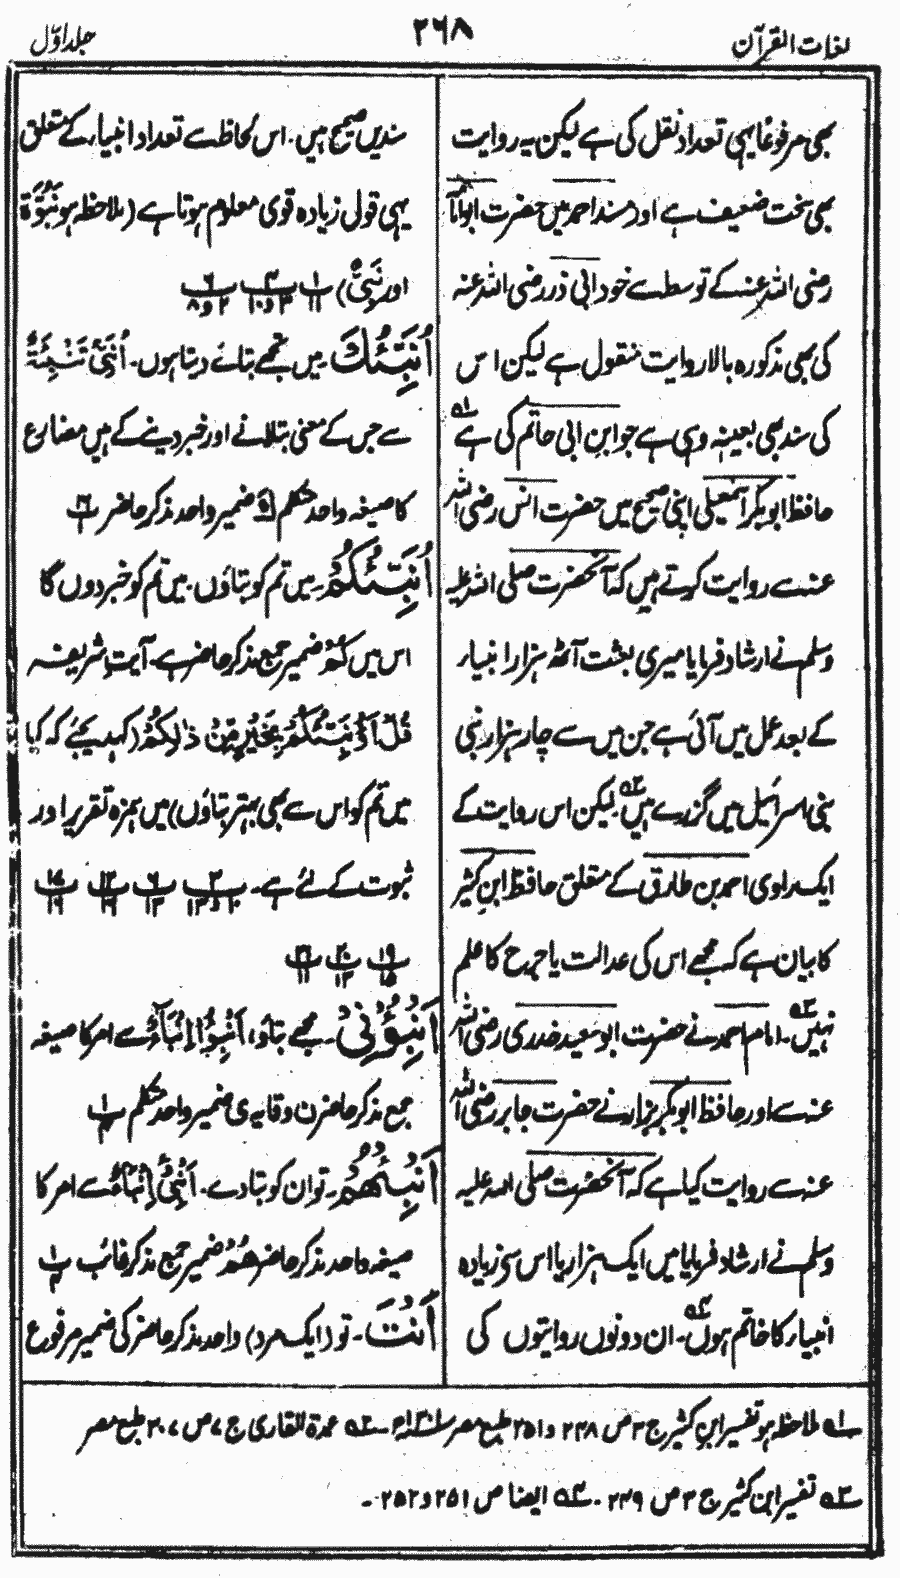 لغات القرآن
۲۶۸
جلد اوّل
بھی مرفوعًا یہی تعداد نقل کی ہے لیکن یہ روایت
بھی سخت ضعیف ہے اور مسند احمد میں حضرت ابو امامہ
رضی اللہ عنہ کے توسط سے خود ابی ذر رضی اللہ عنہ
کی بھی مذکورہ بالا روایت منقول ہے لیکن اس
کی سند بھی بعینہ وہی ہے جو ابن ابی حاتم کی ہے ۱ھ
حافظ ابو بکر اسمٰعیلی اپنی صحیح میں حضرت انس رضی اللہ
عنہ سے روایت کرتے ہیں کہ آنحضرت صلی اللہ علیہ
وسلم نے ارشاد فرمایا میری بعثت آٹھ ہزار انبیاء
کے بعد عمل میں آئی ہے جن میں سے چار ہزار نبی
بنی اسرائیل میں گزرے ہیں ۲ھ لیکن اس روایت کے
ایک راوی احمد بن طارق کے متعلق حافظ ابن کثیر
کا بیان ہے کہ مجھے اس کی عدالت یا جرح کا علم
نہیں ۳ھ۔ امام احمد نے حضرت ابو سعید خدری رضی اللہ
عنہ سے اور حافظ ابو بکر بزار نے حضرت جابر رضی اللہ
عنہ سے روایت کیا ہے کہ آنحضرت صلی اللہ علیہ
وسلم نے ارشاد فرمایا میں ایک ہزار یا اس سے زیادہ
انبیاء کا خاتم ہوں ۴ھ۔ ان دونوں روایتوں کی
سندیں صحیح ہیں۔ اس لحاظ سے تعداد انبیاء کے متعلق
یہی قول زیادہ قوی معلوم ہوتا ہے (ملاحظہ ہو نُبُوَّۃ
اور نَبِیٌّ) پ۱ ۱۱ پ۳ ۳ و ۱۰ پ۶ ۲ و ۸
اُنَبِّئُكَ۔ میں تجھے بتائے دیتا ہوں۔ اُنَبِّئُ تَنْبِئَةٌ
سے جس کے معنی بتلانے اور خبر دینے کے ہیں مضارع
کا صیغہ واحد متکلم كَ ضمیر واحد مذکر حاضر پ۱۶
اُنَبِّئُكُمْ۔ میں تم کو بتاؤں۔ میں تم کو خبر دوں گا
اس میں كُمْ ضمیر جمع مذکر حاضر ہے۔ آیت شریفہ
قُلْ اَؤُنَبِّئُكُمْ بِخَيْرٍ مِّنْ ذٰلِكُمْ (کہہ دیجئے کہ کیا
میں تم کو اس سے بھی بہتر بتاؤں) میں ہمزہ تقریر اور
ثبوت کے لئے ہے۔ پ۳ ۱۰ و ۱۳ پ۶ ۱۳ پ۱۲ ۱۶ پ۱۷ ۱۶
پ۱۹ ۱۵ پ۲۰ ۱۳ پ۲۱ ۱۱
اَنْبِؤُنِیْ۔ مجھے بتاؤ، اَنْبِؤُا اِنْبَاءٌ سے امر کا صیغہ
جمع مذکر حاضر ن وقایہ ی ضمیر واحد متکلم پ۱
اَنْبِئْهُمْ۔ تو ان کو بتا دے۔ اَنْبِئْ اِنْبَاءٌ سے امر کا
صیغہ واحد مذکر حاضر هُمْ ضمیر جمع مذکر غائب پ۱
اَنْتَ۔ تو (ایک مرد) واحد مذکر حاضر کی ضمیر مرفوع
۱ھ ملاحظہ ہو تفسیر ابن کثیر ج ۳ ص ۲۴۸ و ۲۵۱ طبع مصر ۲ھ عمدۃ القاری ج ۷ ص ۲۰۷ طبع مصر
۳ھ تفسیر ابن کثیر ج ۳ ص ۲۴۹۔ ۴ھ ایضا ص ۲۵۱ و ۲۵۲۔